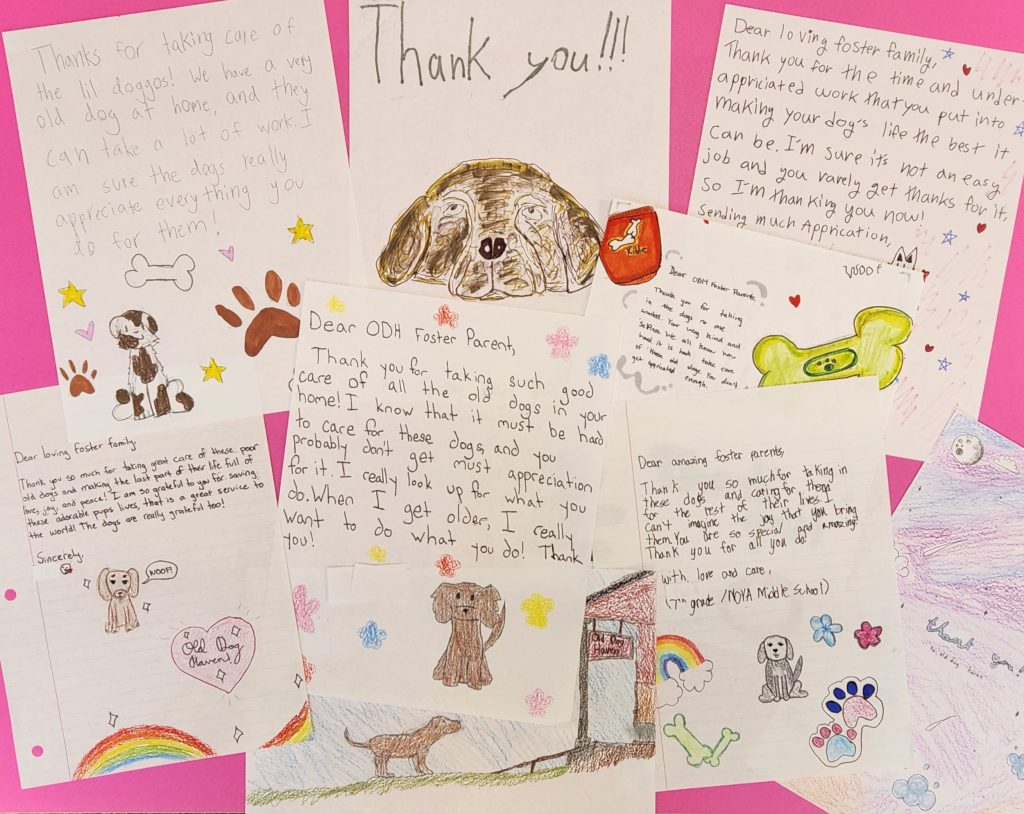 Thanks for taking care of
the lil doggos! We have a very
old dog at home, and they
can take a lot of work. I
am sure the dogs really
appreciate everything you
do for them!
Thank you!!!
Dear loving foster family,
Thank you for the time and under
appriciated work that you put into
making your dog's life the best it
can be. I'm sure its not an easy
job and you varely get thanks for it,
So I'm thanking you now!
Sending much Apprication,
Kible
WOOF
Dear ODH Foster Parents,
Thank you for taking
in the dogs no one
wanted. Your very kind and
We all know how
hard it is to take care
of these old dogs. You don't
get appricated enough.
Dear ODH Foster Parent,
Thank you for taking such good
care of all the old dogs in your
home! I know that it must be hard
to care for these dogs, and you
probably don't get must appreciation
for it. I really look up for what you
do. When I get older, I really
want to do what you do! Thank
you!
Dear loving foster family,
Thank you so much for taking great care of these poor
old dogs and making the last part of their life full of
love, joy, and peace! I am so grateful to you for saving
these adorable pups lives, that is a great service to
the world! The dogs are really grateful too!
Sincerely,
WOOF!
Old Dog
Haven!
Old Dog
Haven
Dear amazing foster parents,
Thank you so much for taking in
these dogs and caring for them
for the rest of their lives. I
can't imagine the joy that you bring
them. You are so special and amazing!
Thank you for all you do!
with love and care,
(7th grade / NOVA Middle School)
thank you!
to old dog haven